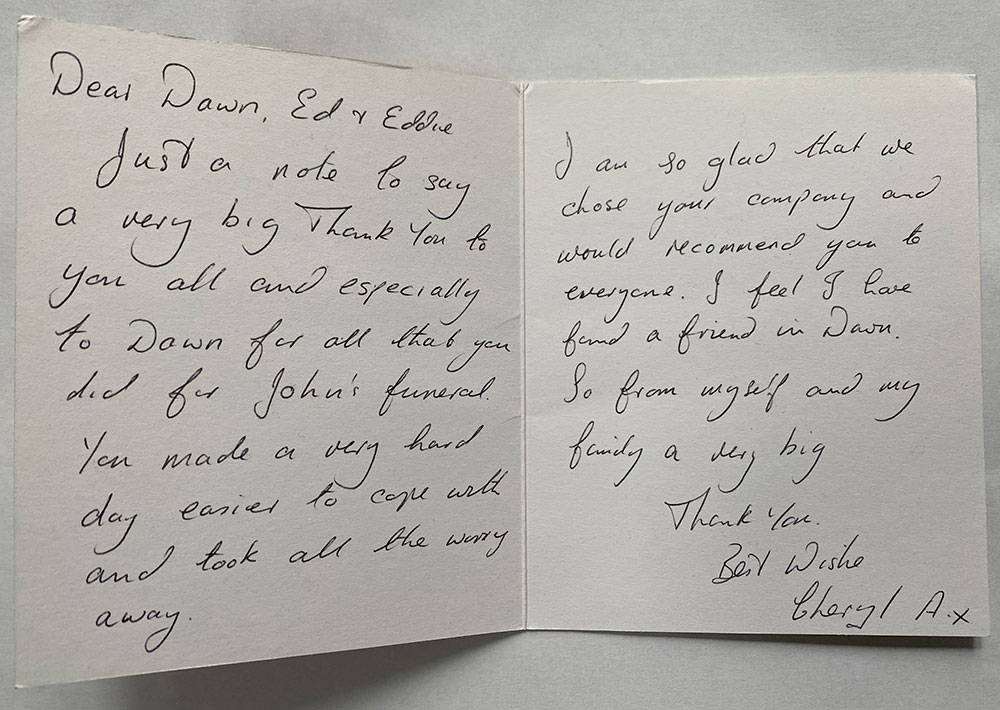 Dear Dawn, Ed & Eddie
Just a note to say
a very big Thank You to
you all and especially
to Dawn for all that you
did for John's funeral.
You made a very hard
day easier to cope with
and took all the worry
away.
I am so glad that we
chose your company and
would recommend you to
everyone. I feel I have
found a friend in Dawn.
So from myself and my
family a very big
Thank You.
Best Wishe
Cheryl A.x